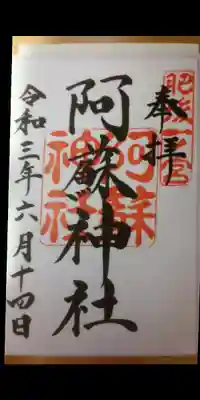 奉拝
肥後一之宮
阿蘇神社
阿蘇
神社
令和三年六月十四日